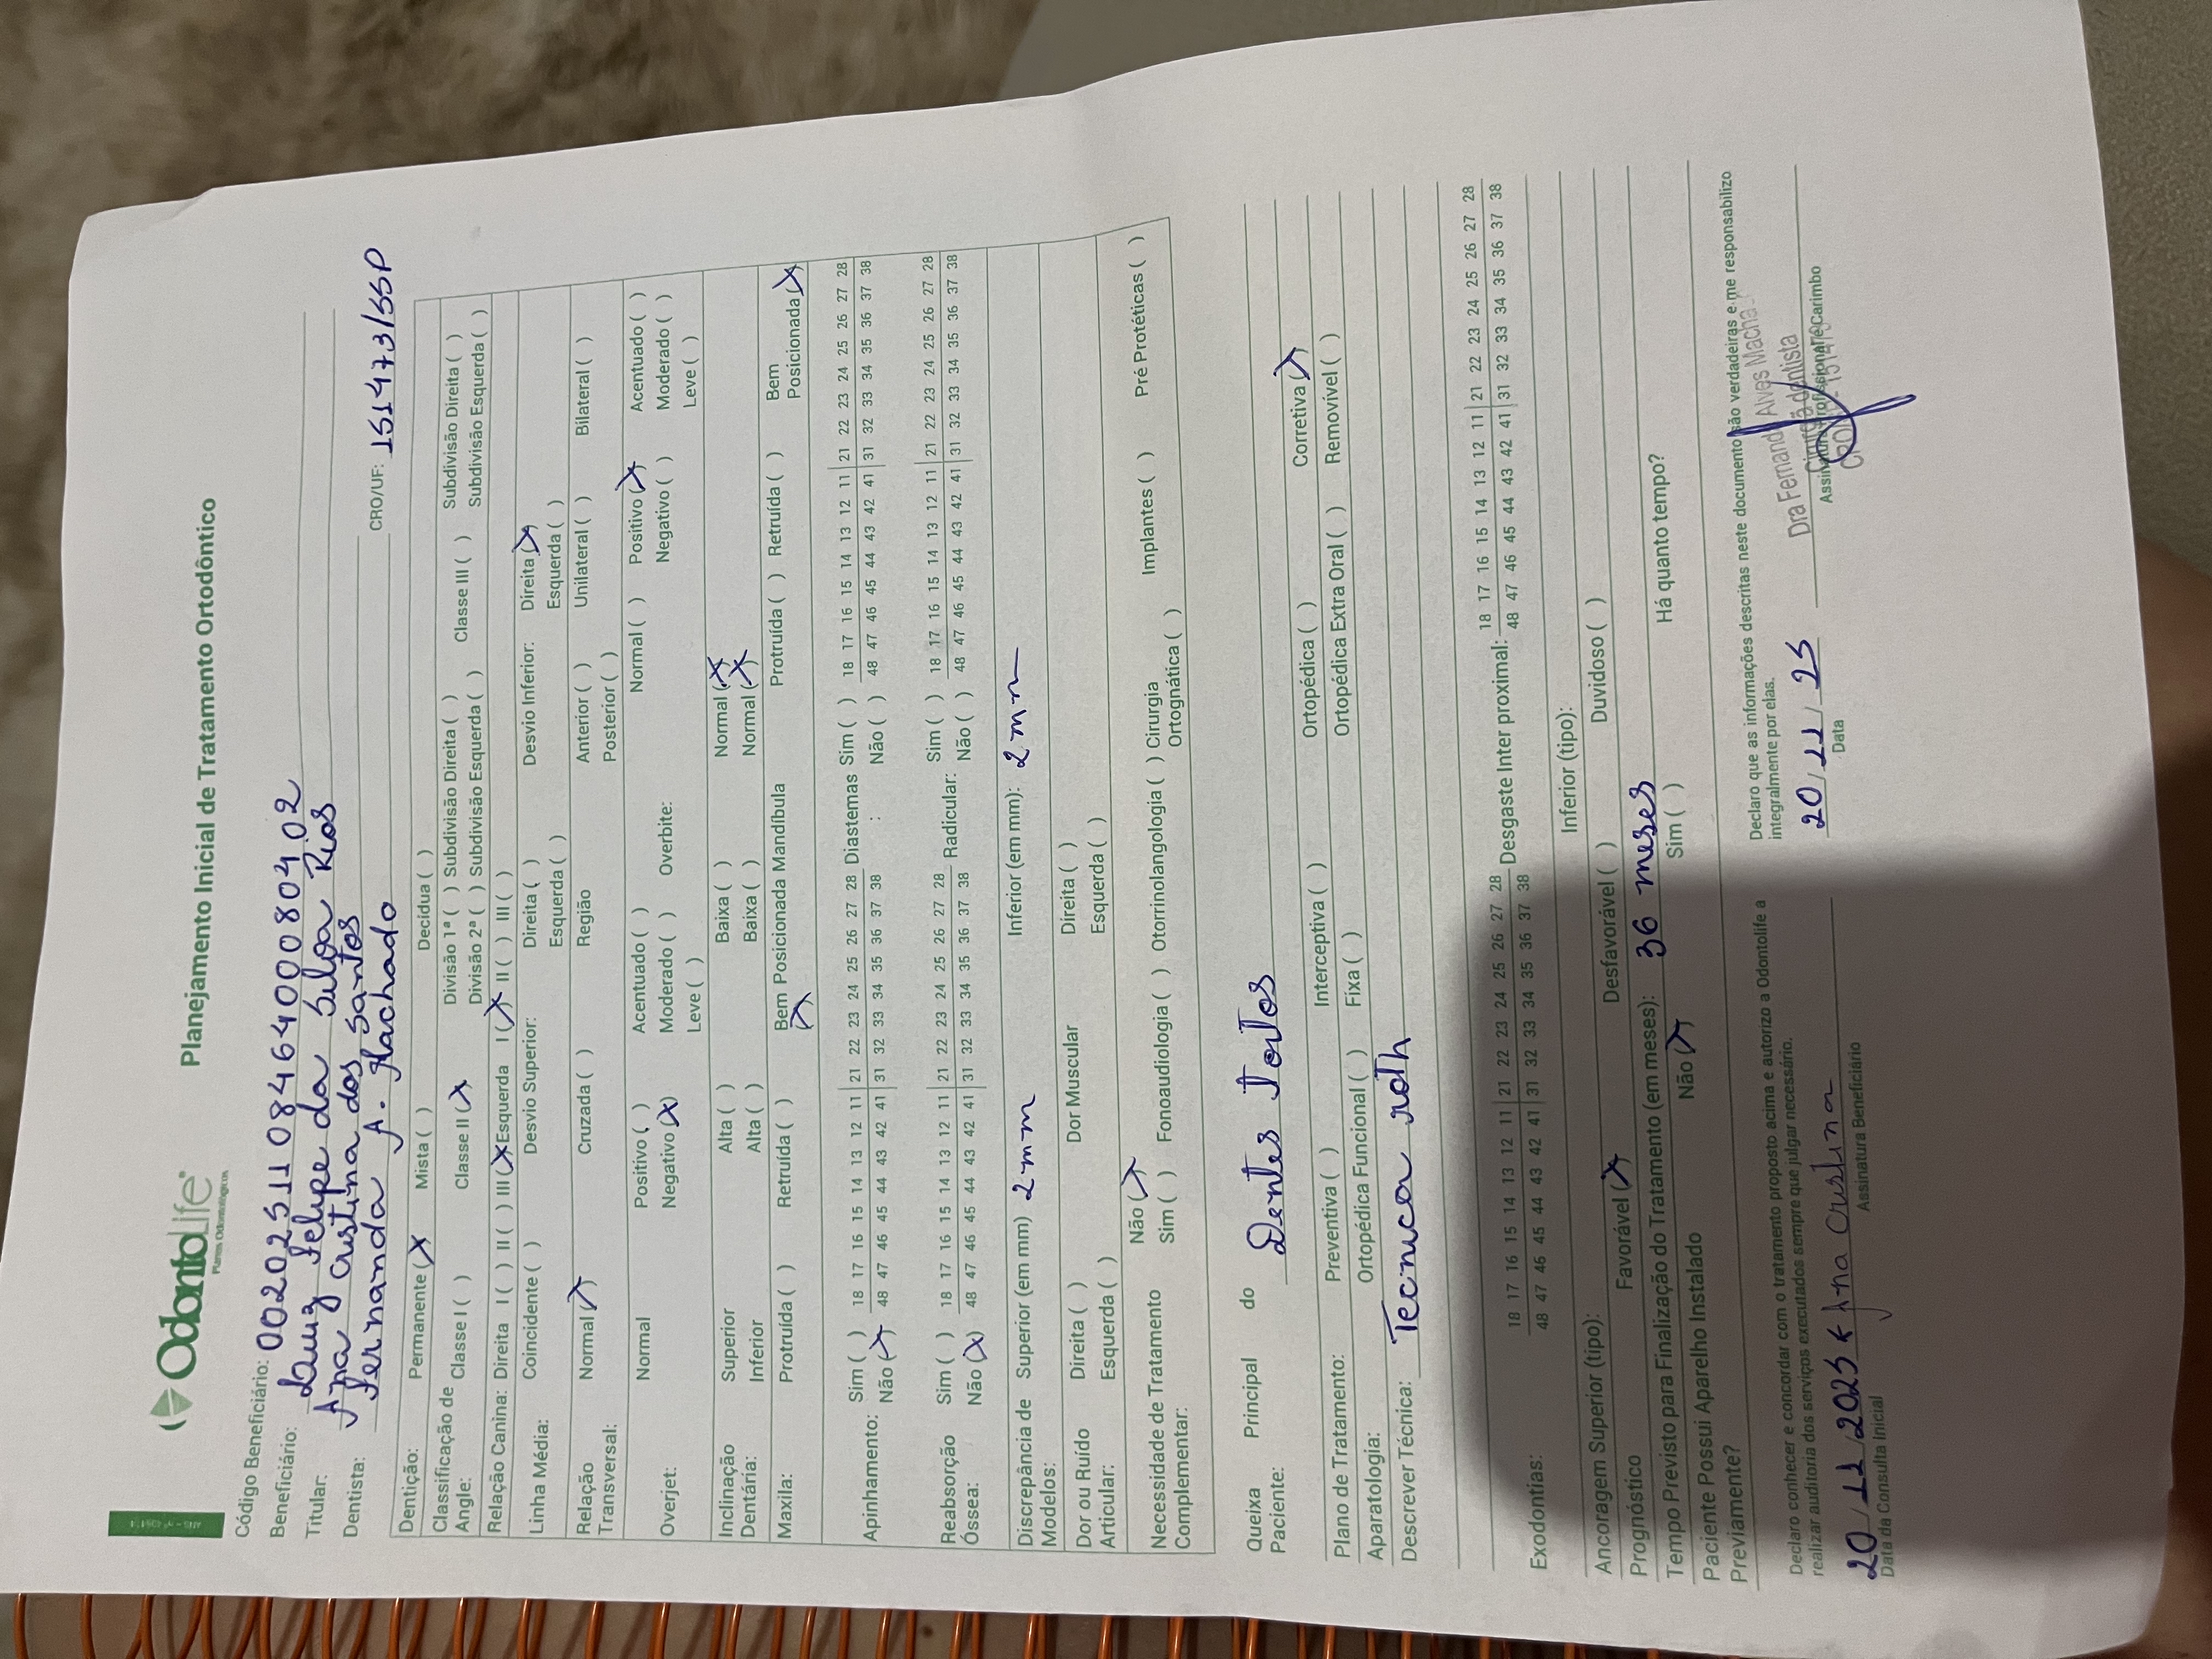 OdontoLife®
Planos Odontológicos
Planejamento Inicial de Tratamento Ortodôntico
Código Beneficiário: 00202511084640008040 2
Beneficiário: Luiz Felipe da Silva Rios
Titular: Ana Cristina dos Santos
Dentista: Fernanda A. Machado CRO/UF: 151473/SSP
Dentição: Permanente (X Mista ( ) Decídua ( )
Classificação de Angle: Classe I ( ) Classe II (X Divisão 1ª ( ) Subdivisão Direita ( ) Classe III ( ) Subdivisão Direita ( )
Divisão 2ª ( ) Subdivisão Esquerda ( ) Subdivisão Esquerda ( )
Relação Canina: Direita I ( ) II ( ) III (X Esquerda I (X II ( ) III ( )
Linha Média: Coincidente ( ) Desvio Superior: Direita ( ) Desvio Inferior: Direita (X
Esquerda ( ) Esquerda ( )
Relação Transversal: Normal (X Cruzada ( ) Região Anterior ( ) Unilateral ( ) Bilateral ( )
Posterior ( )
Overjet: Normal Positivo ( ) Acentuado ( ) Overbite: Normal ( ) Positivo (X Acentuado ( )
Negativo (X) Moderado ( ) Negativo ( ) Moderado ( )
Leve ( ) Leve ( )
Inclinação Dentária: Superior Alta ( ) Baixa ( ) Normal (X
Inferior Alta ( ) Baixa ( ) Normal (X
Maxila: Protruída ( ) Retruída ( ) Bem Posicionada (X Mandíbula Protruída ( ) Retruída ( ) Bem Posicionada (X
Apinhamento: Sim ( ) 18 17 16 15 14 13 12 11 21 22 23 24 25 26 27 28 Diastemas : Sim ( ) 18 17 16 15 14 13 12 11 21 22 23 24 25 26 27 28
Não (X 48 47 46 45 44 43 42 41 31 32 33 34 35 36 37 38 Não ( ) 48 47 46 45 44 43 42 41 31 32 33 34 35 36 37 38
Reabsorção Óssea: Sim ( ) 18 17 16 15 14 13 12 11 21 22 23 24 25 26 27 28 Radicular: Sim ( ) 18 17 16 15 14 13 12 11 21 22 23 24 25 26 27 28
Não (X) 48 47 46 45 44 43 42 41 31 32 33 34 35 36 37 38 Não ( ) 48 47 46 45 44 43 42 41 31 32 33 34 35 36 37 38
Discrepância de Modelos: Superior (em mm) 2mm Inferior (em mm): 2mm
Dor ou Ruído Articular: Direita ( ) Dor Muscular Direita ( )
Esquerda ( ) Esquerda ( )
Necessidade de Tratamento Complementar: Não (X
Sim ( ) Fonoaudiologia ( ) Otorrinolangologia ( ) Cirurgia Ortognática ( ) Implantes ( ) Pré Protéticas ( )
Queixa Principal do Paciente: Dentes Tortos
Plano de Tratamento: Preventiva ( ) Interceptiva ( ) Ortopédica ( ) Corretiva (X
Aparatologia: Ortopédica Funcional ( ) Fixa ( ) Ortopédica Extra Oral ( ) Removível ( )
Descrever Técnica: Tecnica roth
Exodontias: 18 17 16 15 14 13 12 11 21 22 23 24 25 26 27 28 Desgaste Inter proximal: 18 17 16 15 14 13 12 11 21 22 23 24 25 26 27 28
48 47 46 45 44 43 42 41 31 32 33 34 35 36 37 38 48 47 46 45 44 43 42 41 31 32 33 34 35 36 37 38
Ancoragem Superior (tipo): Inferior (tipo):
Prognóstico Favorável (X Desfavorável ( ) Duvidoso ( )
Tempo Previsto para Finalização do Tratamento (em meses): 36 meses
Paciente Possui Aparelho Instalado Previamente? Não (X Sim ( ) Há quanto tempo?
Declaro conhecer e concordar com o tratamento proposto acima e autorizo a Odontolife a
realizar auditoria dos serviços executados sempre que julgar necessário.
20/11/2025 Ana Cristina
Data da Consulta Inicial Assinatura Beneficiário
Declaro que as informações descritas neste documento são verdadeiras e me responsabilizo
integralmente por elas.
20/11/25
Data
Dra Fernanda Alves Macha
Cirurgiã dentista
Assinatura Profissional e Carimbo